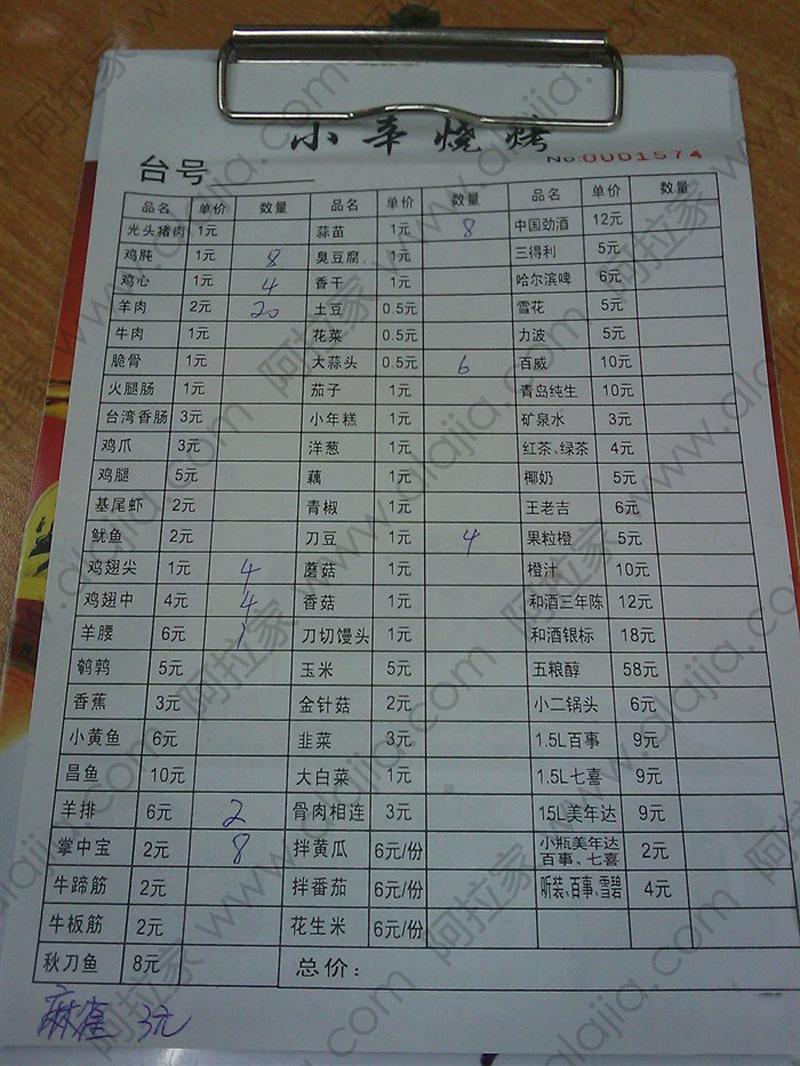 小辛烧烤
No:0001574
台号
品名 单价 数量 品名 单价 数量 品名 单价 数量
光头猪肉 1元 蒜苗 1元 8 中国劲酒 12元
鸡肫 1元 8 臭豆腐 1元 三得利 5元
鸡心 1元 4 香干 1元 哈尔滨啤 6元
羊肉 2元 20 土豆 0.5元 雪花 5元
牛肉 1元 花菜 0.5元 力波 5元
脆骨 1元 大蒜头 0.5元 6 百威 10元
火腿肠 1元 茄子 1元 青岛纯生 10元
台湾香肠 3元 小年糕 1元 矿泉水 3元
鸡爪 3元 洋葱 1元 红茶、绿茶 4元
鸡腿 5元 藕 1元 椰奶 5元
基尾虾 2元 青椒 1元 王老吉 6元
鱿鱼 2元 刀豆 1元 4 果粒橙 5元
鸡翅尖 1元 4 蘑菇 1元 橙汁 10元
鸡翅中 4元 4 香菇 1元 和酒三年陈 12元
羊腰 6元 1 刀切馒头 1元 和酒银标 18元
鹌鹑 5元 玉米 5元 五粮醇 58元
香蕉 3元 金针菇 2元 小二锅头 6元
小黄鱼 6元 韭菜 3元 1.5L百事 9元
昌鱼 10元 大白菜 1元 1.5L七喜 9元
羊排 6元 2 骨肉相连 3元 15L美年达 9元
掌中宝 2元 8 拌黄瓜 6元/份 小瓶美年达百事、七喜 2元
牛蹄筋 2元 拌番茄 6元/份 听装、百事、雪碧 4元
牛板筋 2元 花生米 6元/份
秋刀鱼 8元 总价：
麻雀 3元
阿拉家 www.alajia.com